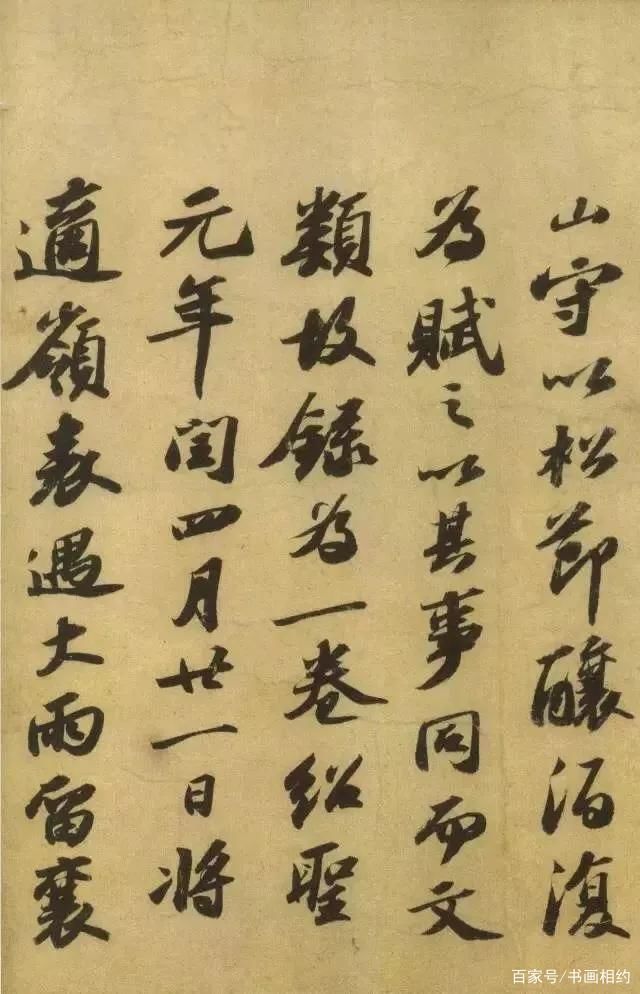 山守以松節釀酒復
為賦之以其事同而文
類故録為一卷紹聖
元年閏四月廿一日將
適嶺表遇大雨留襄
百家号/书画相约